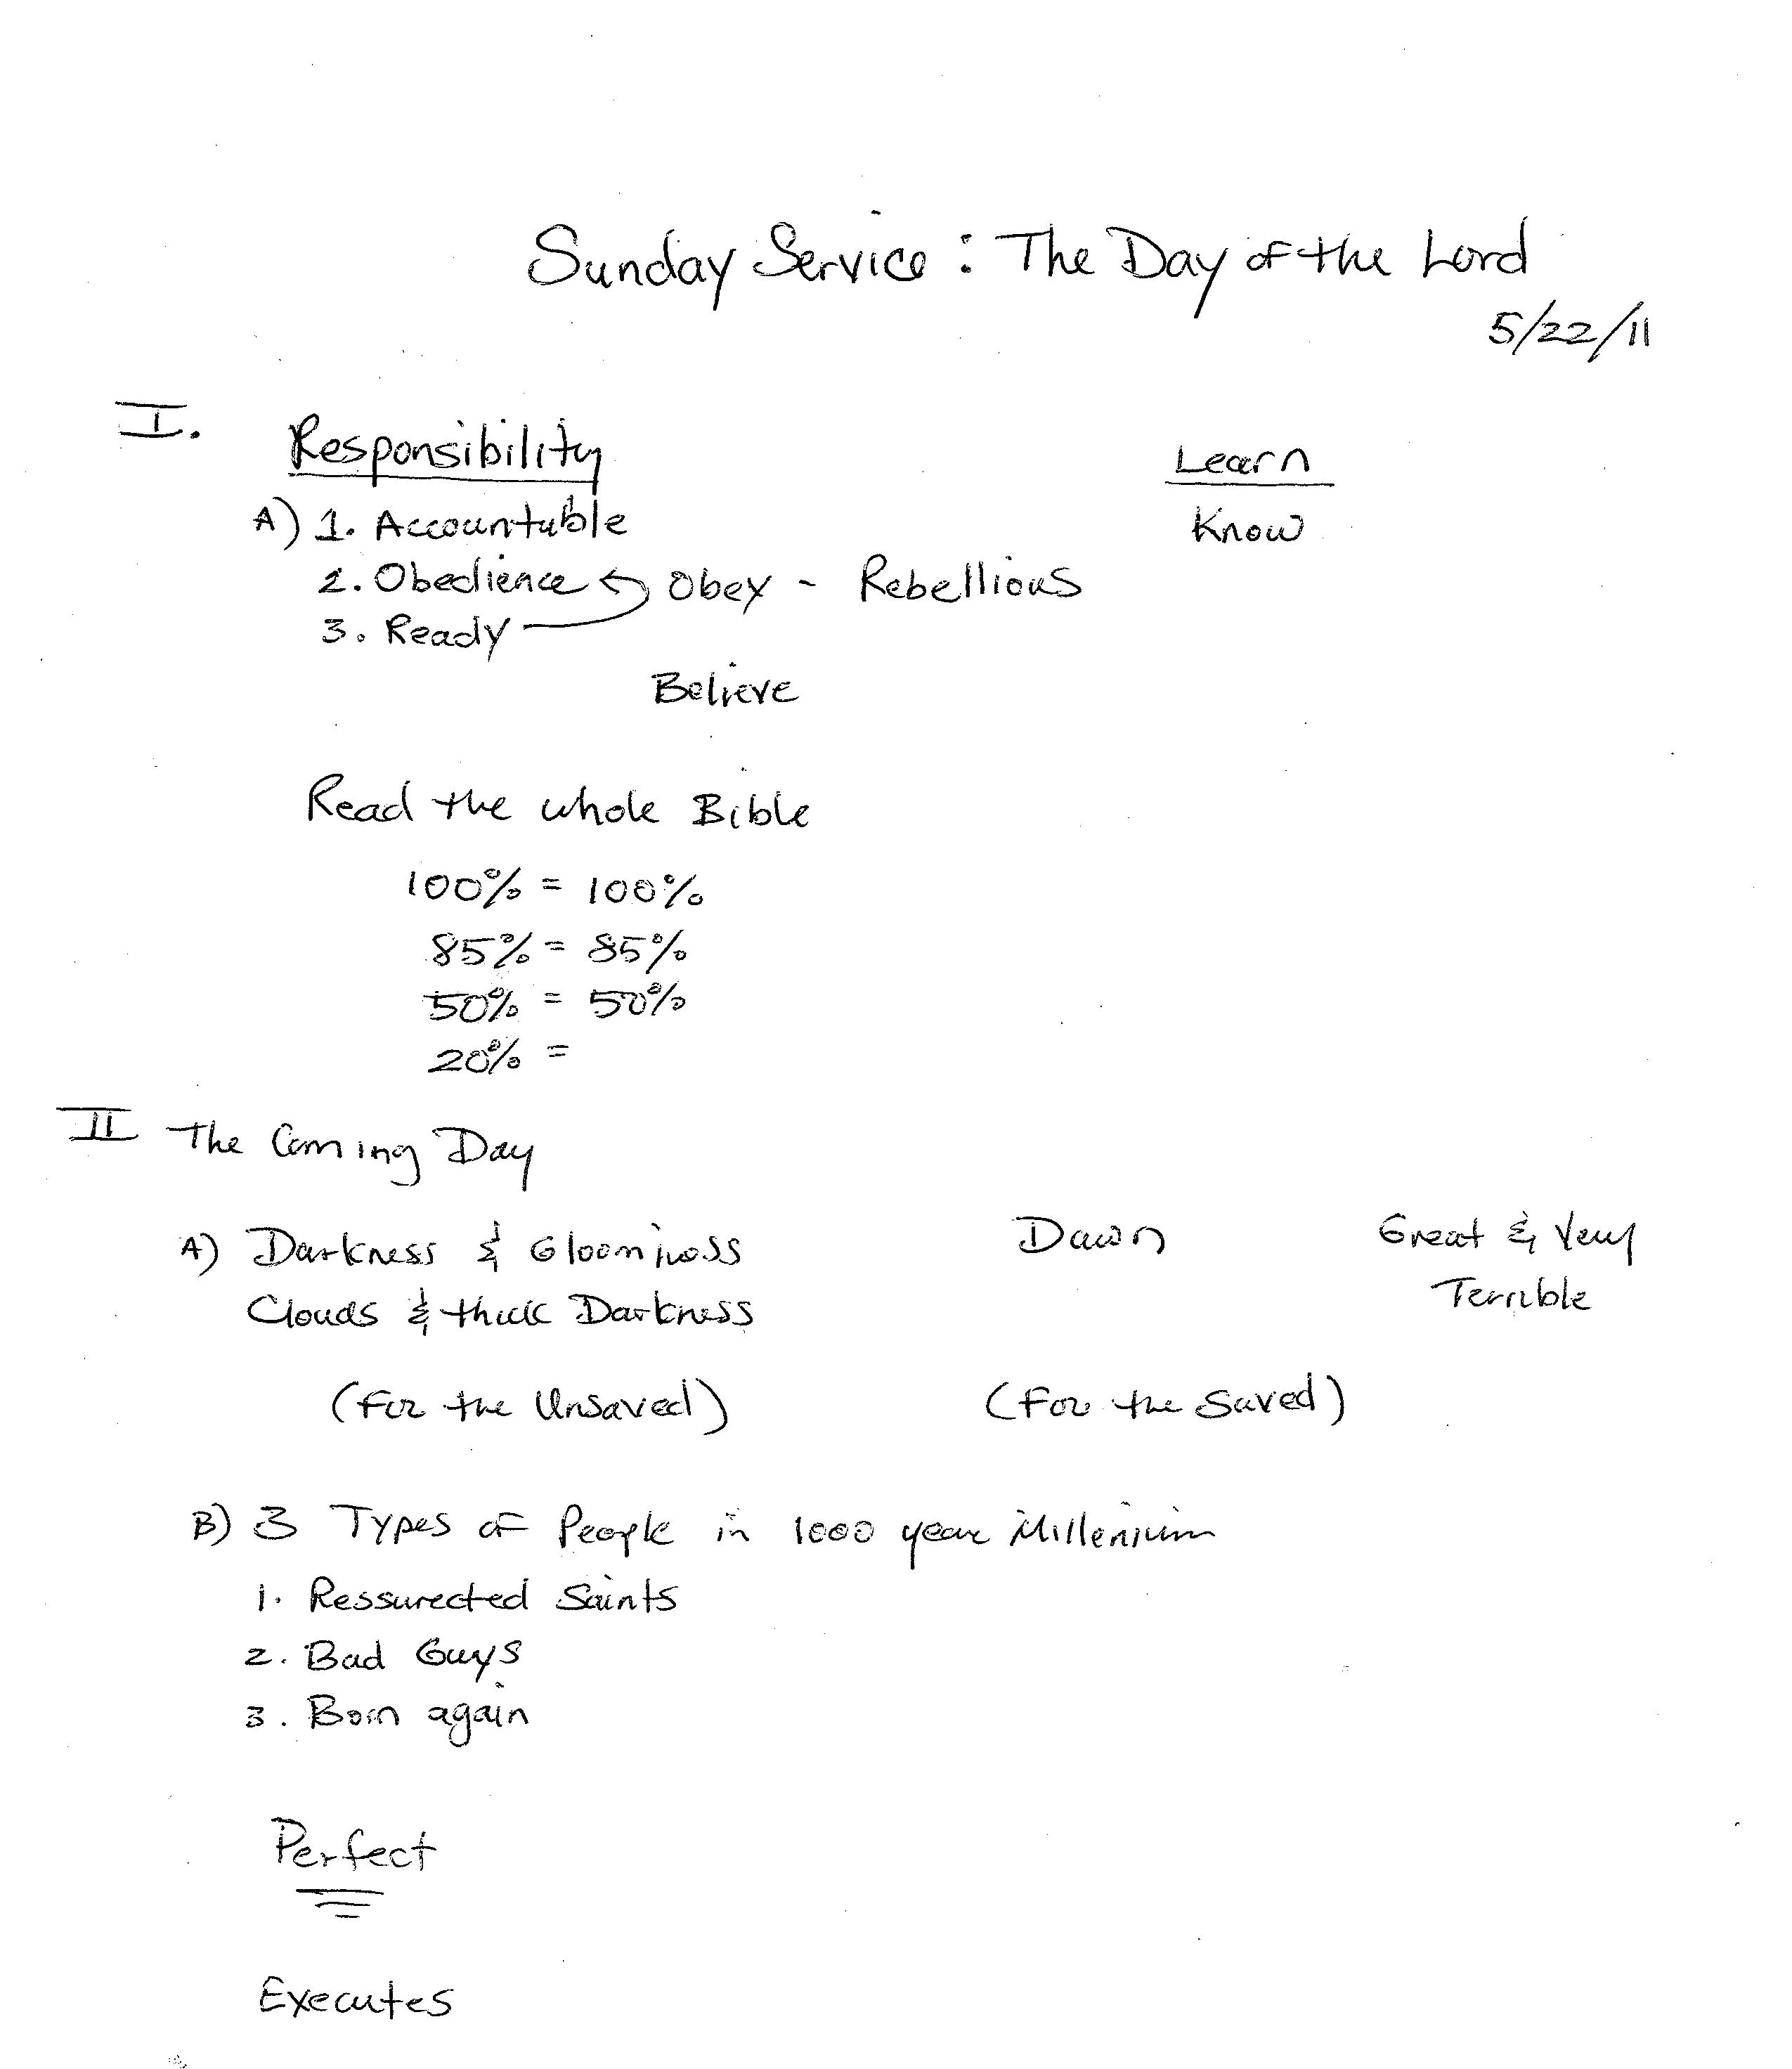 Sunday Service : The Day of the Lord
5/22/11
I. Responsibility Learn
A) 1. Accountable Know
2. Obedience Obey - Rebellious
3. Ready
Believe
Read the whole Bible
100% = 100%
85% = 85%
50% = 50%
20% =
II The Coming Day
A) Darkness & Gloominess Dawn Great & Very
Clouds & thick Darkness Terrible
(For the Unsaved) (For the Saved)
B) 3 Types of People in 1000 year Millenium
1. Ressurected Saints
2. Bad Guys
3. Born again
Perfect
Executes